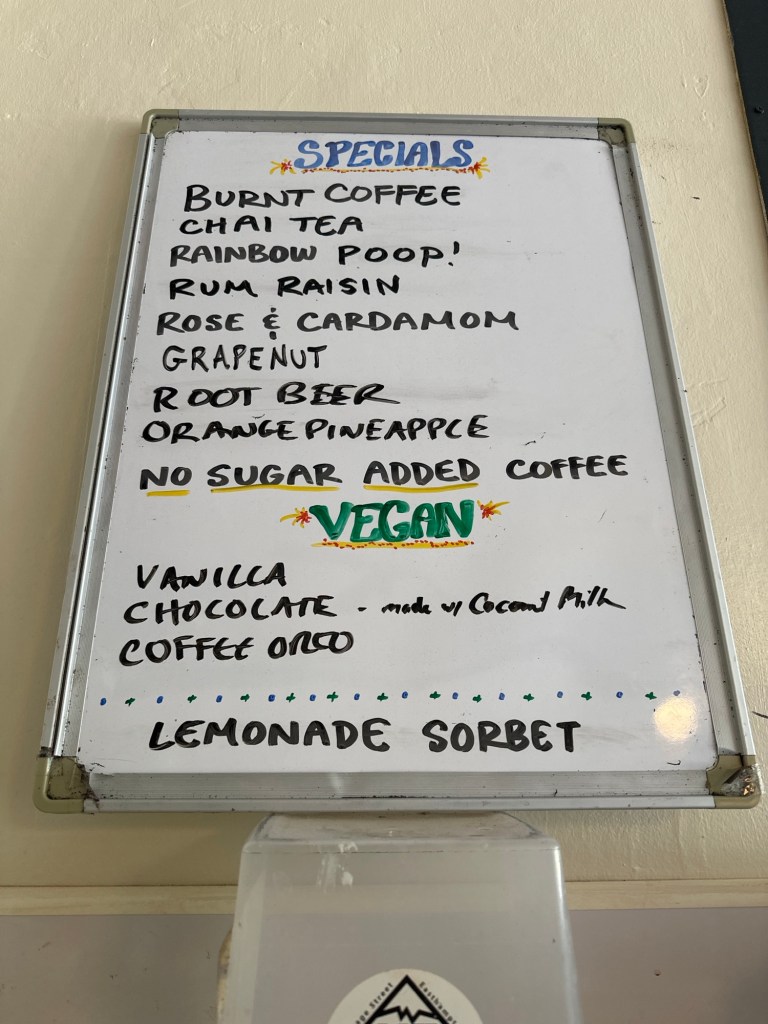 SPECIALS
BURNT COFFEE
CHAI TEA
RAINBOW POOP!
RUM RAISIN
ROSE & CARDAMOM
GRAPENUT
ROOT BEER
ORANGE PINEAPPLE
NO SUGAR ADDED COFFEE
VEGAN
VANILLA
CHOCOLATE - made w/ Coconut Milk
COFFEE OREO
LEMONADE SORBET
Street